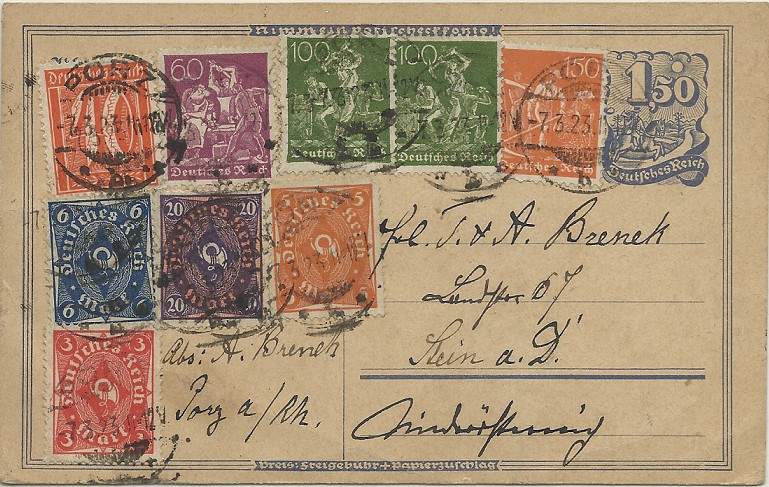 60
Deutsches Reich
100
Deutsches Reich
100
Deutsches Reich
150
Deutsches Reich
1,50
Deutsches Reich
PORZ
-7.3.23.11-12V.
-7.3.23.
6 6
Deutsches Reich
Mark
6 6
20
Deutsches Reich
Mark
20 20
5 5
Deutsches Reich
Mark
3 3
Deutsches Reich
Mark
3 3
A. Brenek
Landstr 67
Stein a. D.
Niederösterreich
Abs: A. Brenek
Porz a/Rh.
Preis: Freigebühr + Papierzuschlag